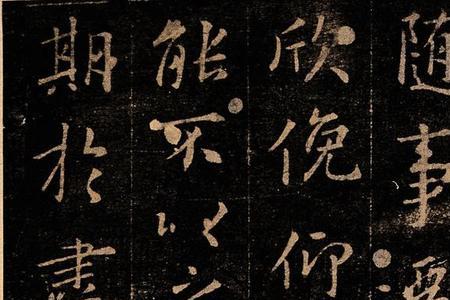 随事遷
欣俛仰
能不以之
期於盡